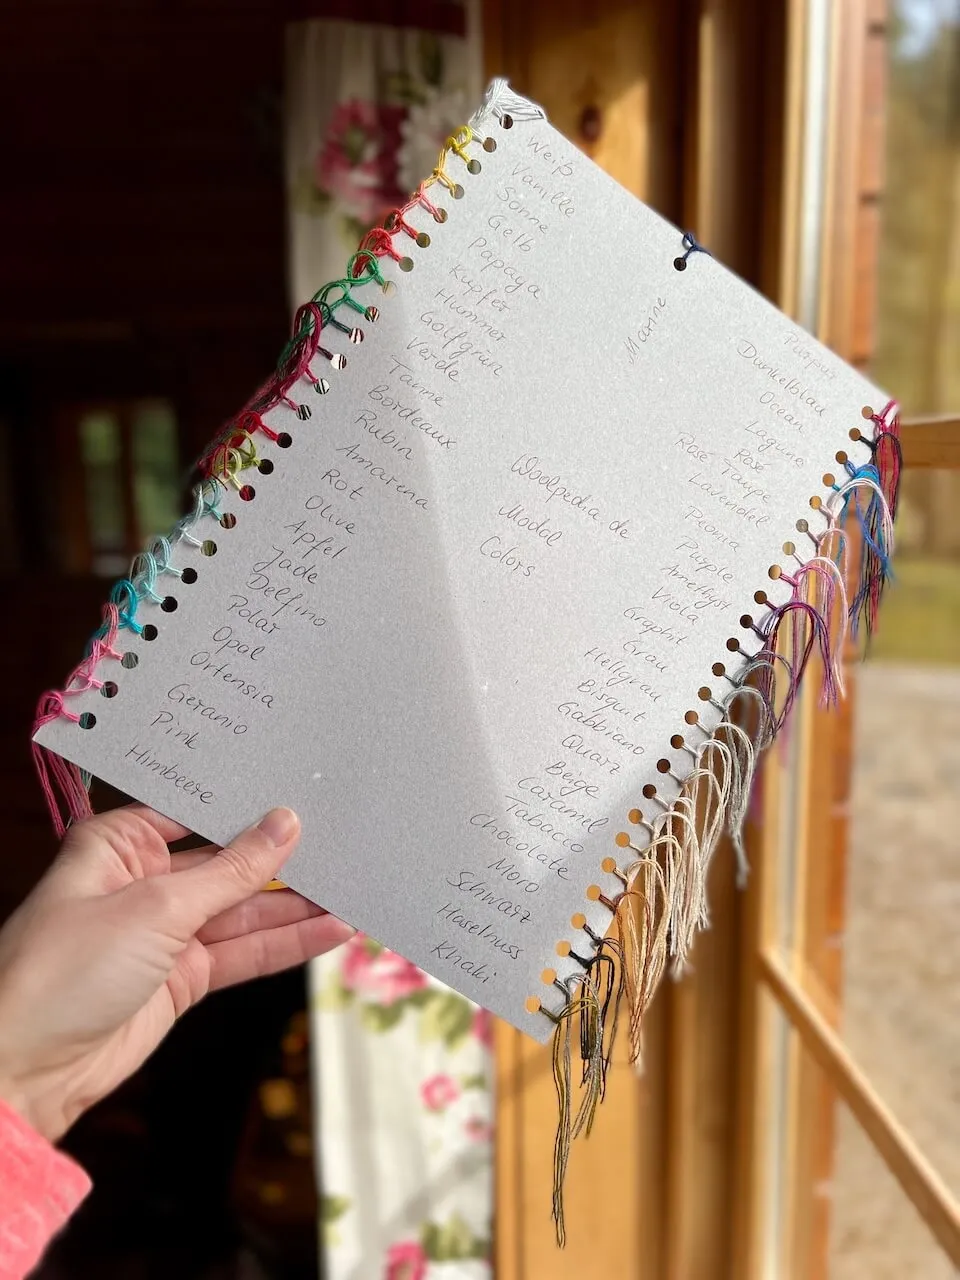 Weiß
Vanille
Sonne
Gelb
Papaya
Kupfer
Hummer
Golfgrün
Verde
Tanne
Bordeaux
Rubin
Amarena
Rot
Olive
Apfel
Jade
Delfino
Polar
Opal
Ortensia
Geranio
Pink
Himbeere
Marine
Woolpedia de
Modal
Colors
Purpur
Dunkelblau
Ocean
Laguno
Rosé
Rose Taupe
Lavendel
Peonia
Purple
Amethyst
Viola
Graphit
Grau
Hellgrau
Bisquit
Gabbiano
Quarz
Beige
Caramel
Tabacco
Chocolate
Moro
Schwarz
Haselnuss
Khaki